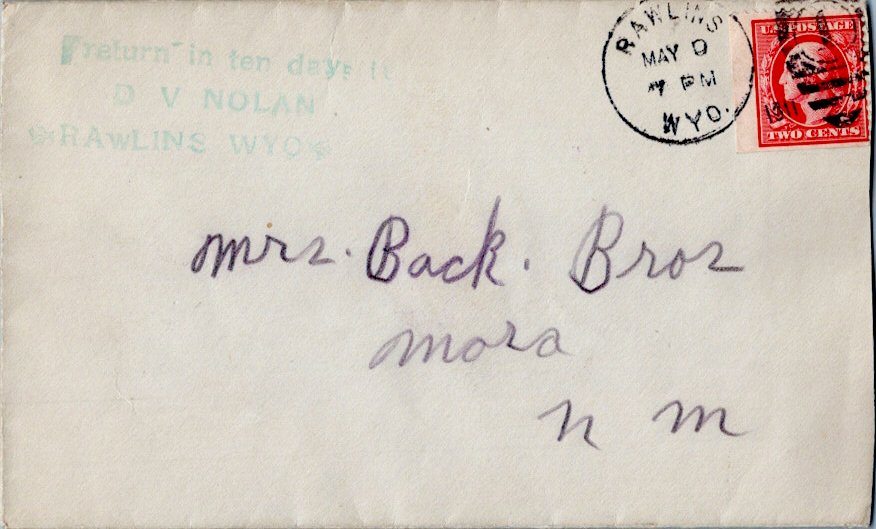 return in ten days to
D V NOLAN
RAWLINS WYO
RAWLINS
MAY
7 PM
WYO.
U.S. POSTAGE
TWO CENTS
Mrs. Back. Bros
Mora
N M